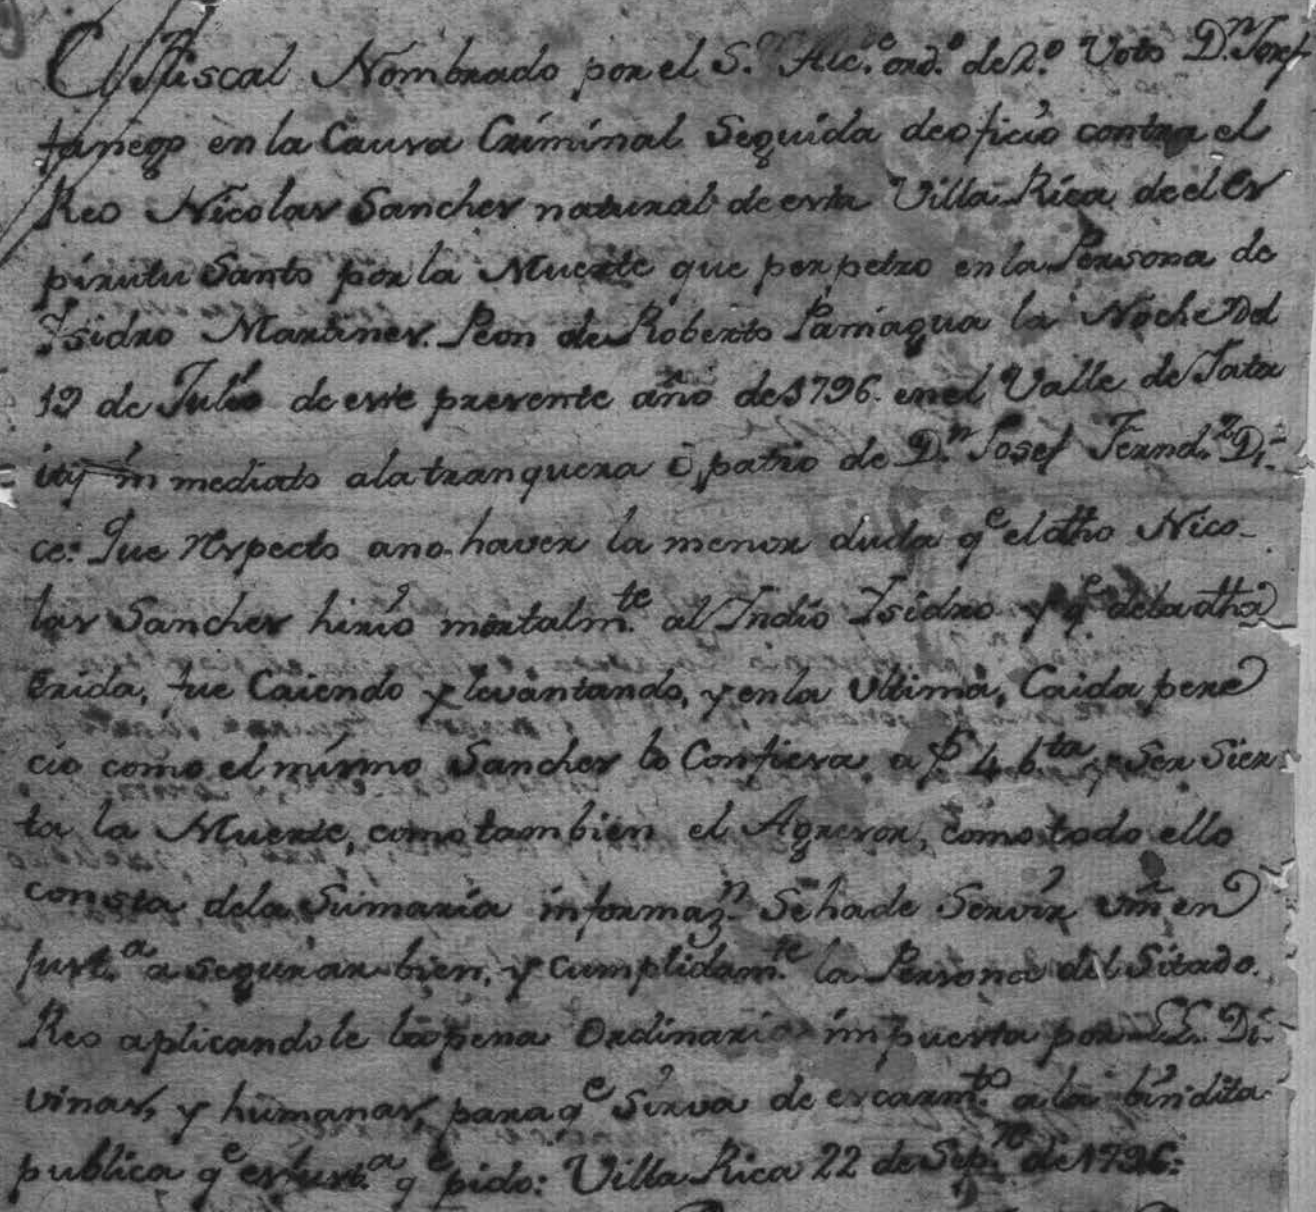 El Fiscal Nombrado por el S.or Alc.e ord.o de 2.o Voto D.n Josef
fariego en la Causa Criminal Seguida de oficio contra el
Reo Nicolas Sanches natural de esta Villa Rica de el Es
piritu Santo por la Muerte que perpetro en la Persona de
Isidro Martines. Peon de Roberto Samaqua la Noche del
19 de Julio de este presente año de 1796. en el Valle de Tata
ity inmediato ala tranquera ò patio de D.n Josef Fernd.z Di-
ce: Que respecto ano haver la menor duda q.e el dho Nico-
las Sanches hirio mortalm.te al Indio Isidro y q.e dela dha
erida, fue Caiendo y levantando, y en la Ultima, Caida pere
cio como el mismo Sanches lo Confiesa a f 4 b.ta y Ser Sier
ta la Muerte, como tambien el Agresor, como todo ello
consta dela Sumaria informaz.n Se ha de Servir Vm en
Just.a asegurar bien, y cumplidam.te la Persona del Sitado.
Reo aplicandole la pena Ordinaria impuesta por LL. Di-
vinas, y humanas, para q.e Sirva de escarm.to ala bindita
publica q.e es Just.a q.e pido: Villa Rica 22 de Sep.re de 1796: